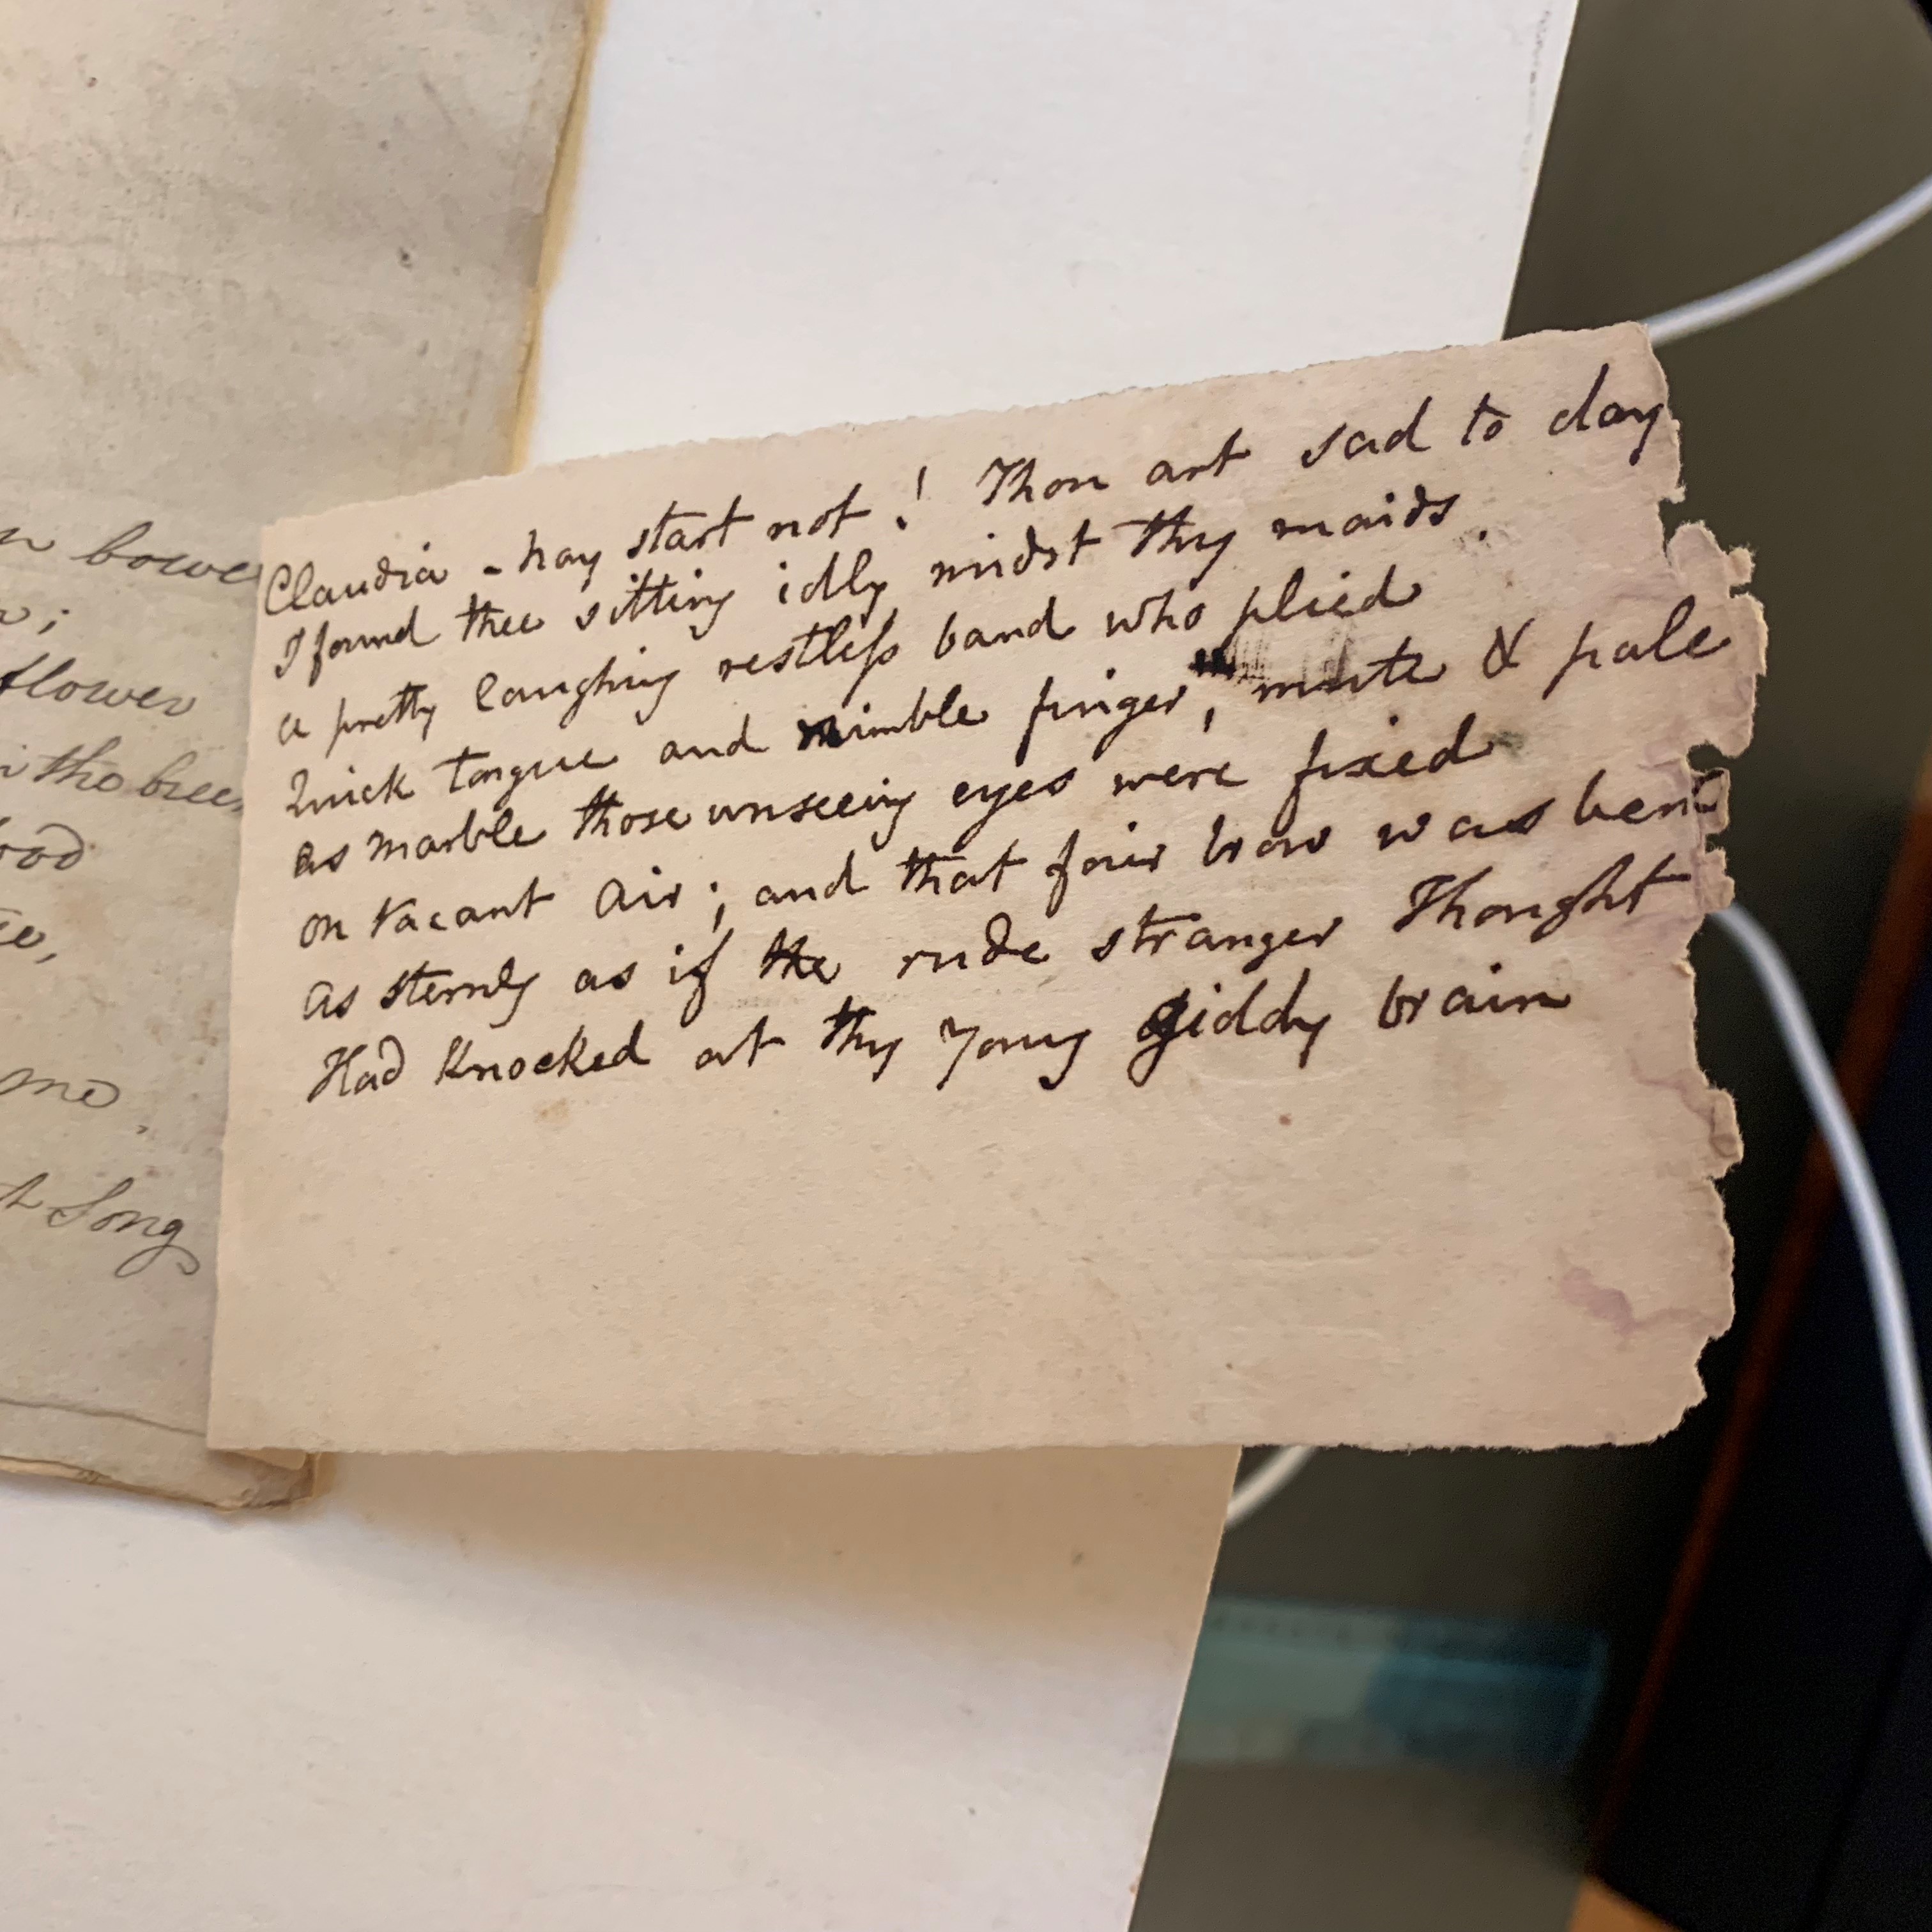 bowe
;
flower
the bree
me,
Song
Claudia - nay start not! Thou art sad to day
I found thee sitting idly midst thy maids.
a pretty laughing restless band who plied
Quick tongue and nimble finger, mute & pale
as marble those unseeing eyes were fixed
on vacant air; and that fair brow was bent
as sternly as if the rude stranger Thought
Had knocked at thy young giddy brain